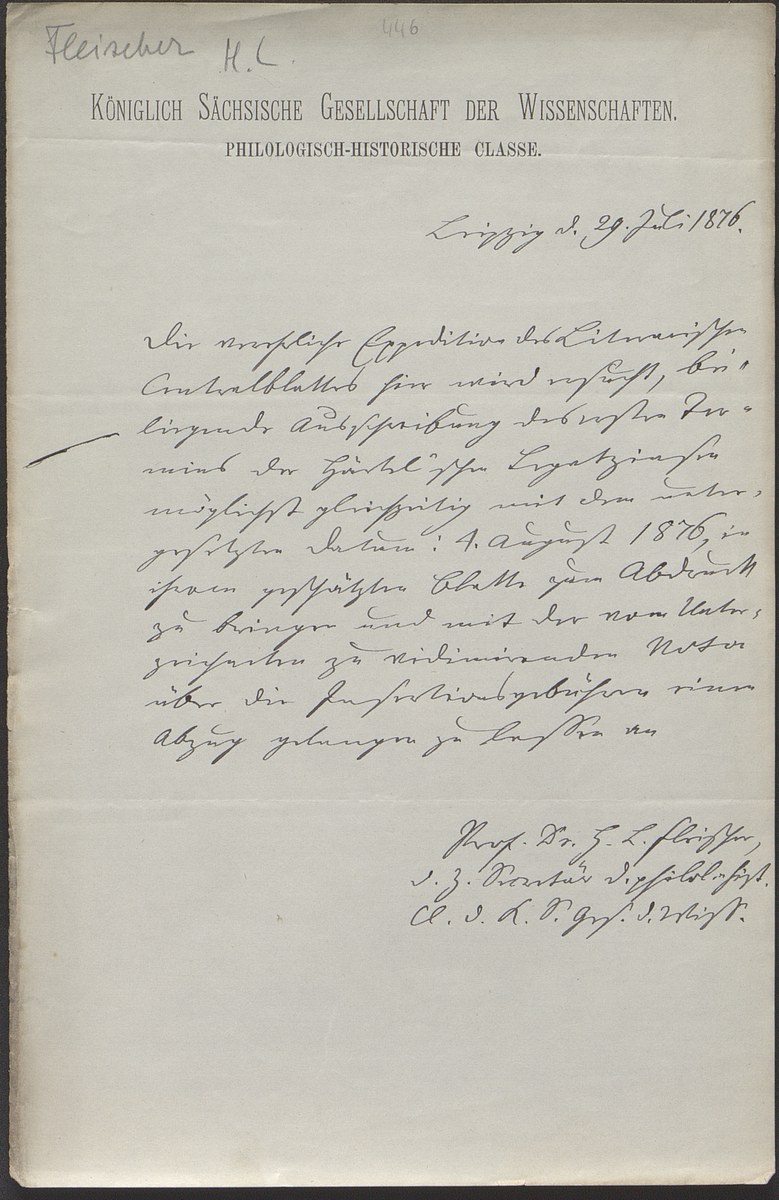 446
Fleischer H. L.
KÖNIGLICH SÄCHSISCHE GESELLSCHAFT DER WISSENSCHAFTEN.
PHILOLOGISCH-HISTORISCHE CLASSE.
Leipzig d. 29. Juli 1876.
Die verehrliche Expedition des Literarischen
Centralblattes hier wird ersucht, bei-
liegende Ausschreibung des ersten Ter-
mins der Härtel'schen Legatzinsen
möglichst gleichzeitig mit dem unter-
gesetzten Datum: 4. August 1876, in
ihrem geschätzten Blatte zum Abdruck
zu bringen und mit der vom Unter-
zeichneten zu vidimirenden Nota
über die Insertionsgebühren einen
Abzug gelangen zu lassen an
Prof. Dr. H. L. Fleischer,
d. Z. Secretär d. philol.-hist.
Cl. d. K. S. Ges. d. Wiss.